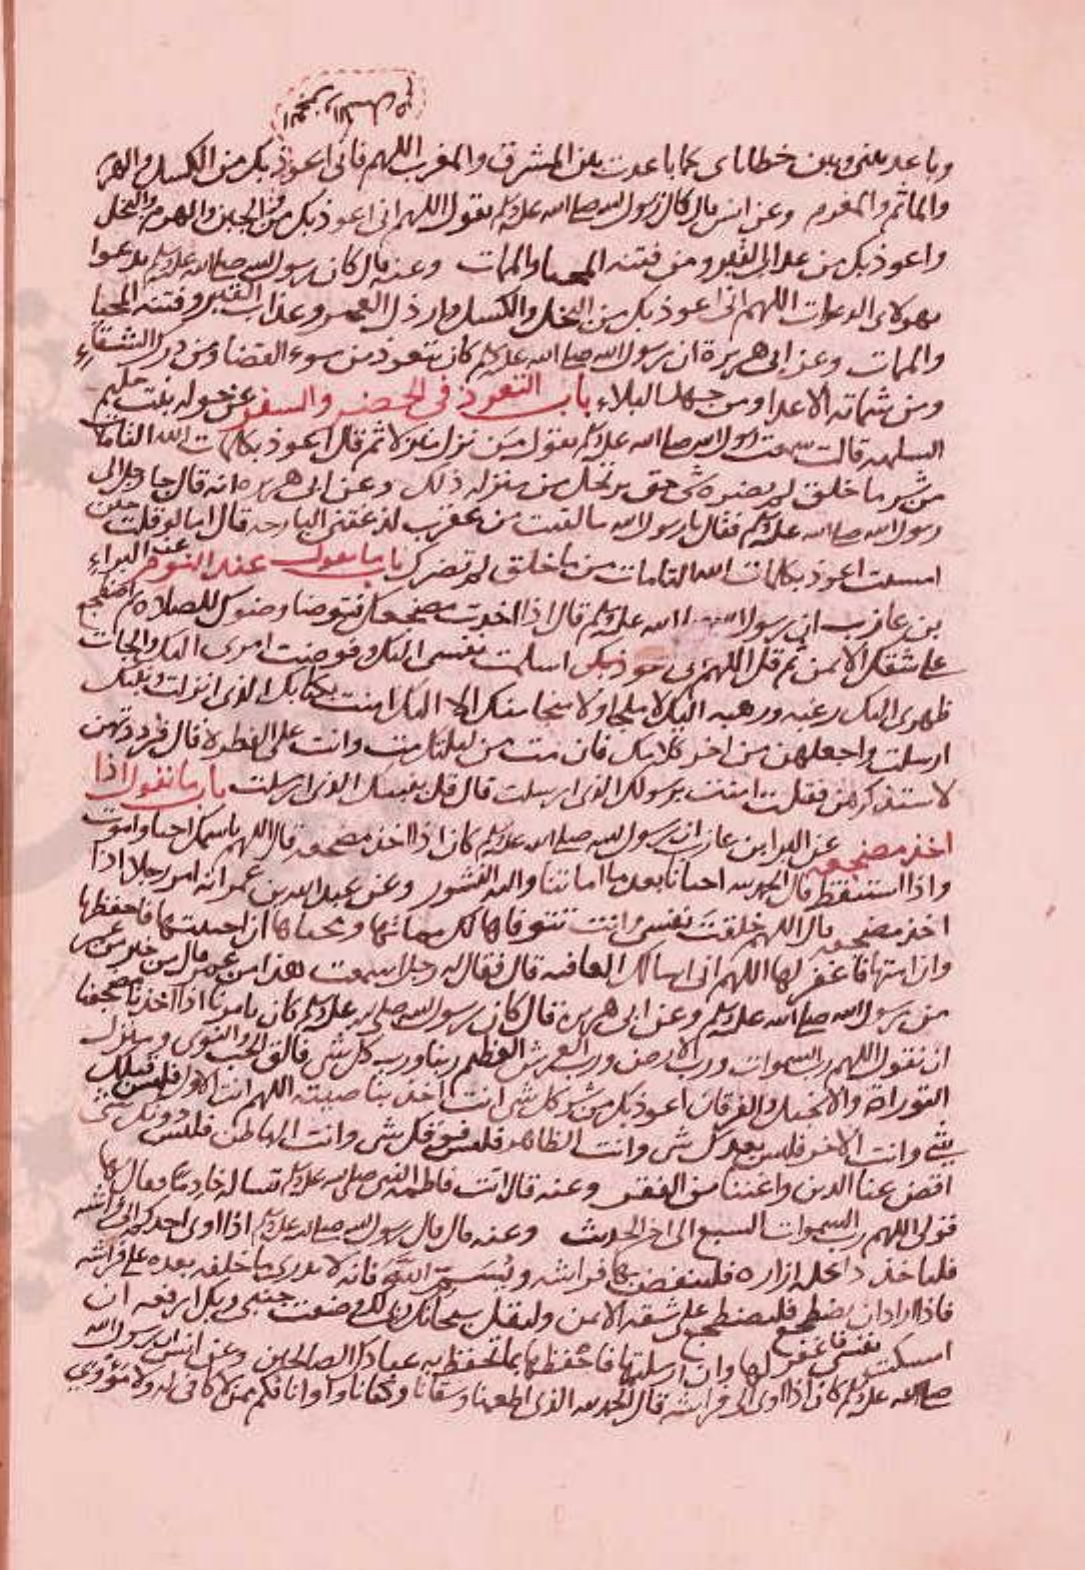 وباعد بينى وبين خطاياى كما باعدت بين المشرق والمغرب اللهم فانى اعوذ بك من الكسل والهرم
والماثم والمغرم وعن انس قال كان رسول الله صلى الله عليه وسلم يقول اللهم انى اعوذ بك من الجبن والهرم والبخل
واعوذ بك من عذاب القبر ومن فتنة المحيا والممات وعنه قال كان رسول الله صلى الله عليه وسلم يدعوا
بهولاى الدعوات اللهم انى اعوذ بك من البخل والكسل وارذل العمر وعذاب القبر وفتنة المحيا
والممات وعن ابى هريرة ان رسول الله صلى الله عليه وسلم كان يتعوذ من سوء القضا ومن درك الشقاء
ومن شماتة الاعدا ومن جهد البلاء باب التعوذ فى الحضر والسفر عن خولة بنت حكيم
السلمية قالت سمعت رسول الله صلى الله عليه وسلم يقول من نزل منزلا ثم قال اعوذ بكلمات الله التامات
من شر ما خلق لم يضره شى حتى يرتحل من منزله ذلك وعن ابى هريرة انه قال جا رجل الى
رسول الله صلى الله عليه وسلم فقال يا رسول الله ما لقيت من عقرب لدغتنى البارحة قال اما لو قلت حين
امسيت اعوذ بكلمات الله التامات من ما خلق لم تضرك باب ما يقول عند النوم عن البراء
بن عازب ان رسول الله صلى الله عليه وسلم قال اذا اخذت مضجعك فتوضا وضوك للصلاة ثم اضطجع
على شقك الايمن ثم قل اللهم انى اسلمت نفسى اليك وفوضت امرى اليك والجات
ظهرى اليك رغبه ورهبه اليك لا ملجا ولا منجا منك الا اليك امنت بكتابك الذى انزلت ونبيك
ارسلت واجعلهن من اخر كلامك فان مت من ليلتك مت وانت على الفطرة قال فرددتهن
لاستذكرهن فقلت امنت برسولك الذى ارسلت قال قل بنبيك الذى ارسلت باب ما نقول اذا
اخذ مضجعه عن البرا بن عازب ان رسول الله صلى الله عليه وسلم كان اذا اخذ مضجعه قال اللهم باسمك احيا واموت
واذا استيقظ قال الحمد لله احيانا بعد ما اماتنا واليه النشور وعن عبد الله بن عمر انه امر رجلا اذا
اخذ مضجعه قال اللهم خلقت نفسى وانت تتوفاها لك مماتها ومحياها ان احييتها فاحفظها
وان امتها فاغفر لها اللهم انى اسالك العافيه قال فقال له رجل سمعت هذا من عمر قال من خير من عمر
من رسول الله صلى الله عليه وسلم وعن ابى هريرة قال كان رسول الله صلى الله عليه وسلم كان يامرنا اذا اخذنا مضجعنا
ان نقول اللهم رب السموات ورب الارض ورب العرش العظيم ربنا ورب كل شى فالق الحب والنوى ومنزل
التوراة والانجيل والفرقان اعوذ بك من شر كل شى انت اخذ بناصيته اللهم انت الاول فليس قبلك
شئ وانت الاخر فليس بعدك شى وانت الظاهر فليس فوقك شى وانت الباطن فليس دونك شئ
اقض عنا الدين واغننا من الفقر وعنه قال اتت فاطمه النبى صلى الله عليه وسلم تساله خادما فقال لها
قولى اللهم رب السموات السبع الى اخر الحديث وعنه قال قال رسول الله صلى الله عليه وسلم اذا اوى احدكم الى فراشه
فلياخذ داخل ازاره فلينفض بها فراشه ويسمى الله فانه لا يدرى ما خلفه بعده على فراشه
فاذا اراد ان يضطجع فليضطجع على شقه الايمن وليقل سبحانك ربى لك وضعت جنبى وبك ارفعه ان
امسكت نفسى فاغفر لها وان ارسلتها فاحفظها بما تحفظ به عبادك الصالحين وعن انس ان رسول الله
صلى الله عليه وسلم كان اذا اوى الى فراشه قال الحمد لله الذى اطعمنا وسقانا وكفانا واوانا فكم ممن لا كافى له ولا مؤوي